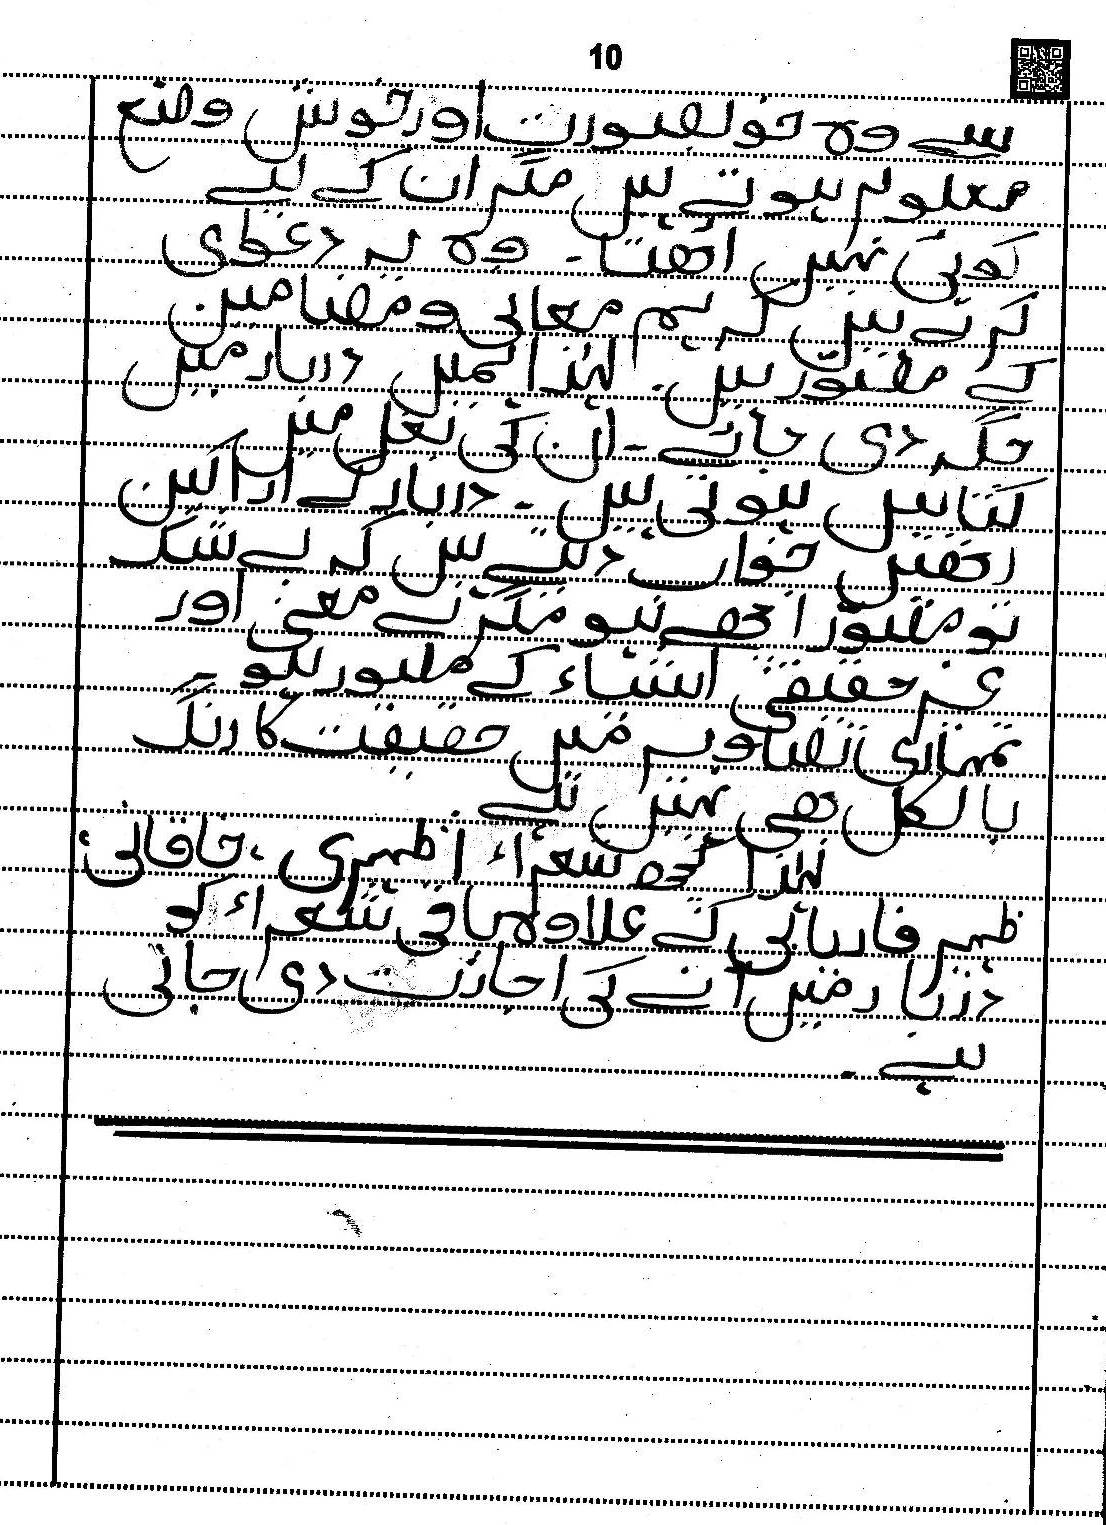 10
سے وہ خوبصورت اور خوش وضع
معلوم ہوتے ہیں مگر ان کے لیے
کوئی نہیں اٹھتا۔ وہ یہ دعوٰی
کرتے ہیں کہ ہم معانی و مضامین
کے مصور ہیں۔ لہٰذا ہمیں دربار میں
جگہ دی جائے۔ ان کی بغل میں
کتابیں ہوتی ہیں۔ دربار کے اراکین
انھیں جواب دیتے ہیں کہ بے شک
تو مصور اچھے ہو مگر بے معنی اور
غیر حقیقی اشیاء کے مصور ہو۔
تمہاری تصاویر میں حقیقت کا رنگ
بالکل بھی نہیں ہے
لہٰذا کچھ شعراء اظہری، خاقانی،
ظہیر فاریابی کے علاوہ باقی شعراء کو
دربار میں آنے کی اجازت دی جاتی
ہے۔